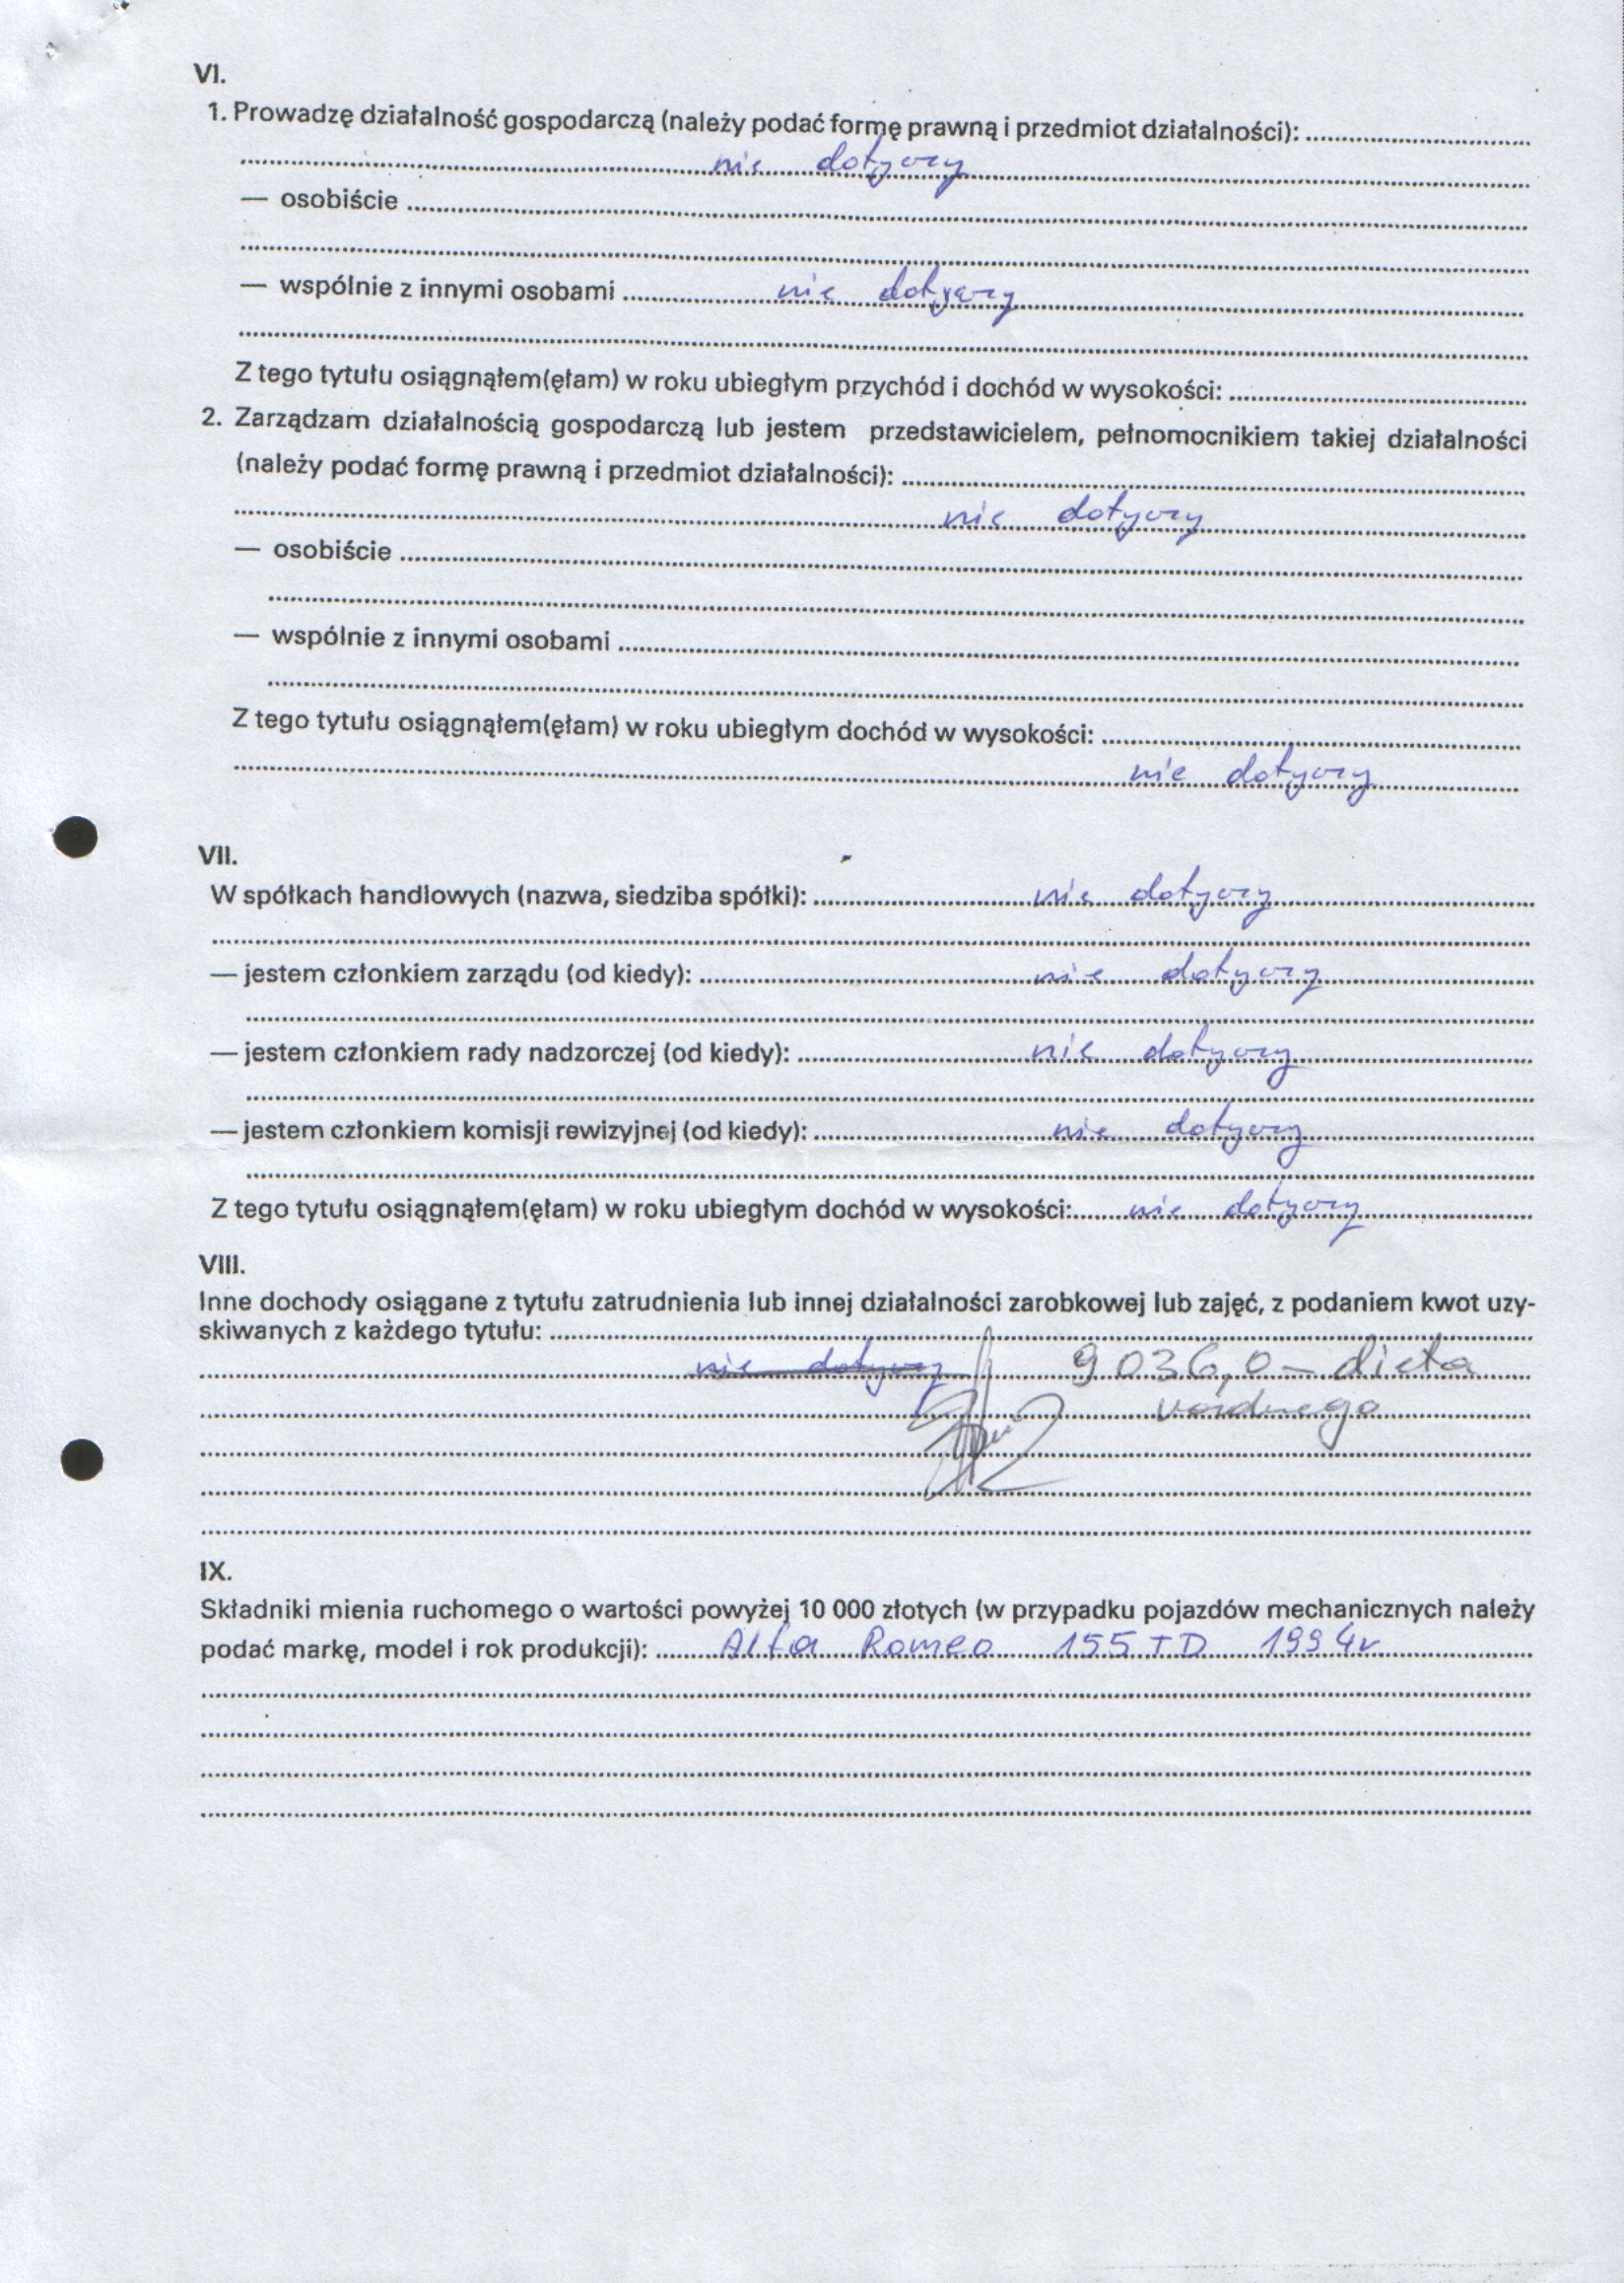 VI.
1. Prowadzę działalność gospodarczą (należy podać formę prawną i przedmiot działalności): ..........
nie dotyczy
— osobiście ..........
— wspólnie z innymi osobami .......... nie dotyczy
Z tego tytułu osiągnąłem(ęłam) w roku ubiegłym przychód i dochód w wysokości: ..........
2. Zarządzam działalnością gospodarczą lub jestem przedstawicielem, pełnomocnikiem takiej działalności
(należy podać formę prawną i przedmiot działalności): ..........
nie dotyczy
— osobiście ..........
— wspólnie z innymi osobami ..........
Z tego tytułu osiągnąłem(ęłam) w roku ubiegłym dochód w wysokości: ..........
nie dotyczy
VII.
W spółkach handlowych (nazwa, siedziba spółki): .......... nie dotyczy
— jestem członkiem zarządu (od kiedy): .......... nie dotyczy
— jestem członkiem rady nadzorczej (od kiedy): .......... nie dotyczy
— jestem członkiem komisji rewizyjnej (od kiedy): .......... nie dotyczy
Z tego tytułu osiągnąłem(ęłam) w roku ubiegłym dochód w wysokości: .......... nie dotyczy
VIII.
Inne dochody osiągane z tytułu zatrudnienia lub innej działalności zarobkowej lub zajęć, z podaniem kwot uzy-
skiwanych z każdego tytułu: ..........
nie dotyczy 9 036,0 – dieta
radnego
IX.
Składniki mienia ruchomego o wartości powyżej 10 000 złotych (w przypadku pojazdów mechanicznych należy
podać markę, model i rok produkcji): .......... Alfa Romeo 155 TD 1994r